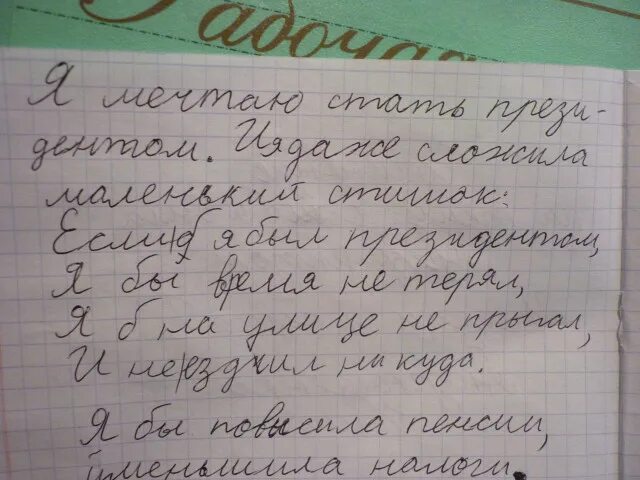 Рабочая
Я мечтаю стать прези-
дентом. И я даже сложила
маленький стишок:
Если б я был президентом,
Я бы время не терял,
Я б на улице не прыгал,
И не ездил ни куда.
Я бы повысила пенсии,
уменьшила налоги.